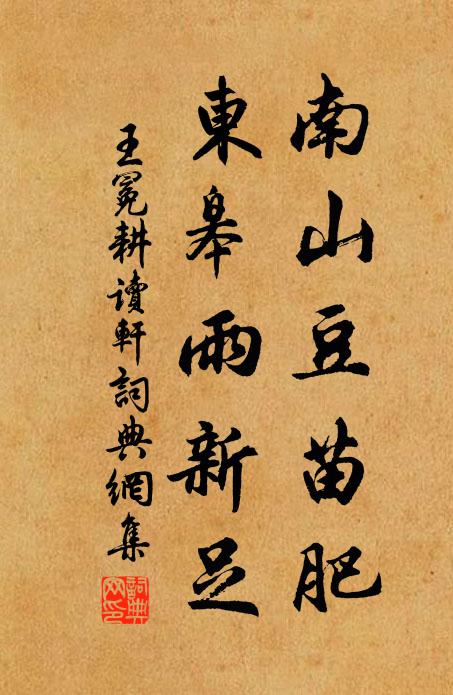 南山豆苗肥
東皋雨新足
王冕耕讀軒詞典網集
詞典
网印